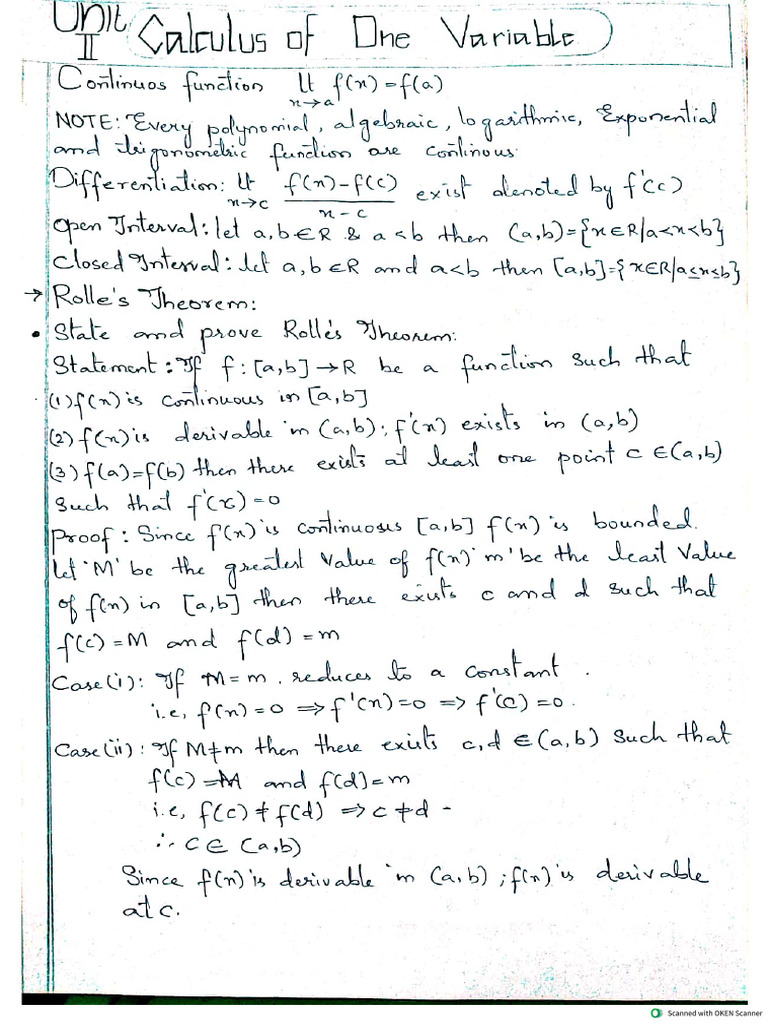 Unit II Calculus of One Variable
Continuos function lt x→a f(x)=f(a)
NOTE: Every polynomial, algebraic, logarithmic, Exponential
and trigonometric function are continous.
Differentiation: lt x→c f(x)-f(c) / x-c exist denoted by f'(c)
Open Interval: let a,b∈R & a<b then (a,b)={x∈R/a<x<b}
Closed Interval: let a,b∈R and a<b then [a,b]={x∈R/a≤x≤b}
→ Rolle's Theorem:
• State and prove Rolle's Theorem:
Statement: If f:[a,b]→R be a function such that
(1) f(x) is continuous in [a,b]
(2) f(x) is derivable in (a,b); f'(x) exists in (a,b)
(3) f(a)=f(b) then there exists at least one point c∈(a,b)
such that f'(x)=0
Proof: Since f'(x) is continuous [a,b] f(x) is bounded.
Let 'M' be the greatest value of f(x) 'm' be the least value
of f(x) in [a,b] then there exists c and d such that
f(c)=M and f(d)=m
Case(i): If M=m. reduces to a constant.
i.e, f'(x)=0 ⇒ f'(x)=0 ⇒ f'(c)=0.
Case(ii): If M≠m then there exists c,d∈(a,b) such that
f(c)=M and f(d)=m
i.e, f(c)≠f(d) ⇒ c≠d -
∴ c∈(a,b)
Since f(x) is derivable in (a,b); f(x) is derivable
at c.
Scanned with OKEN Scanner